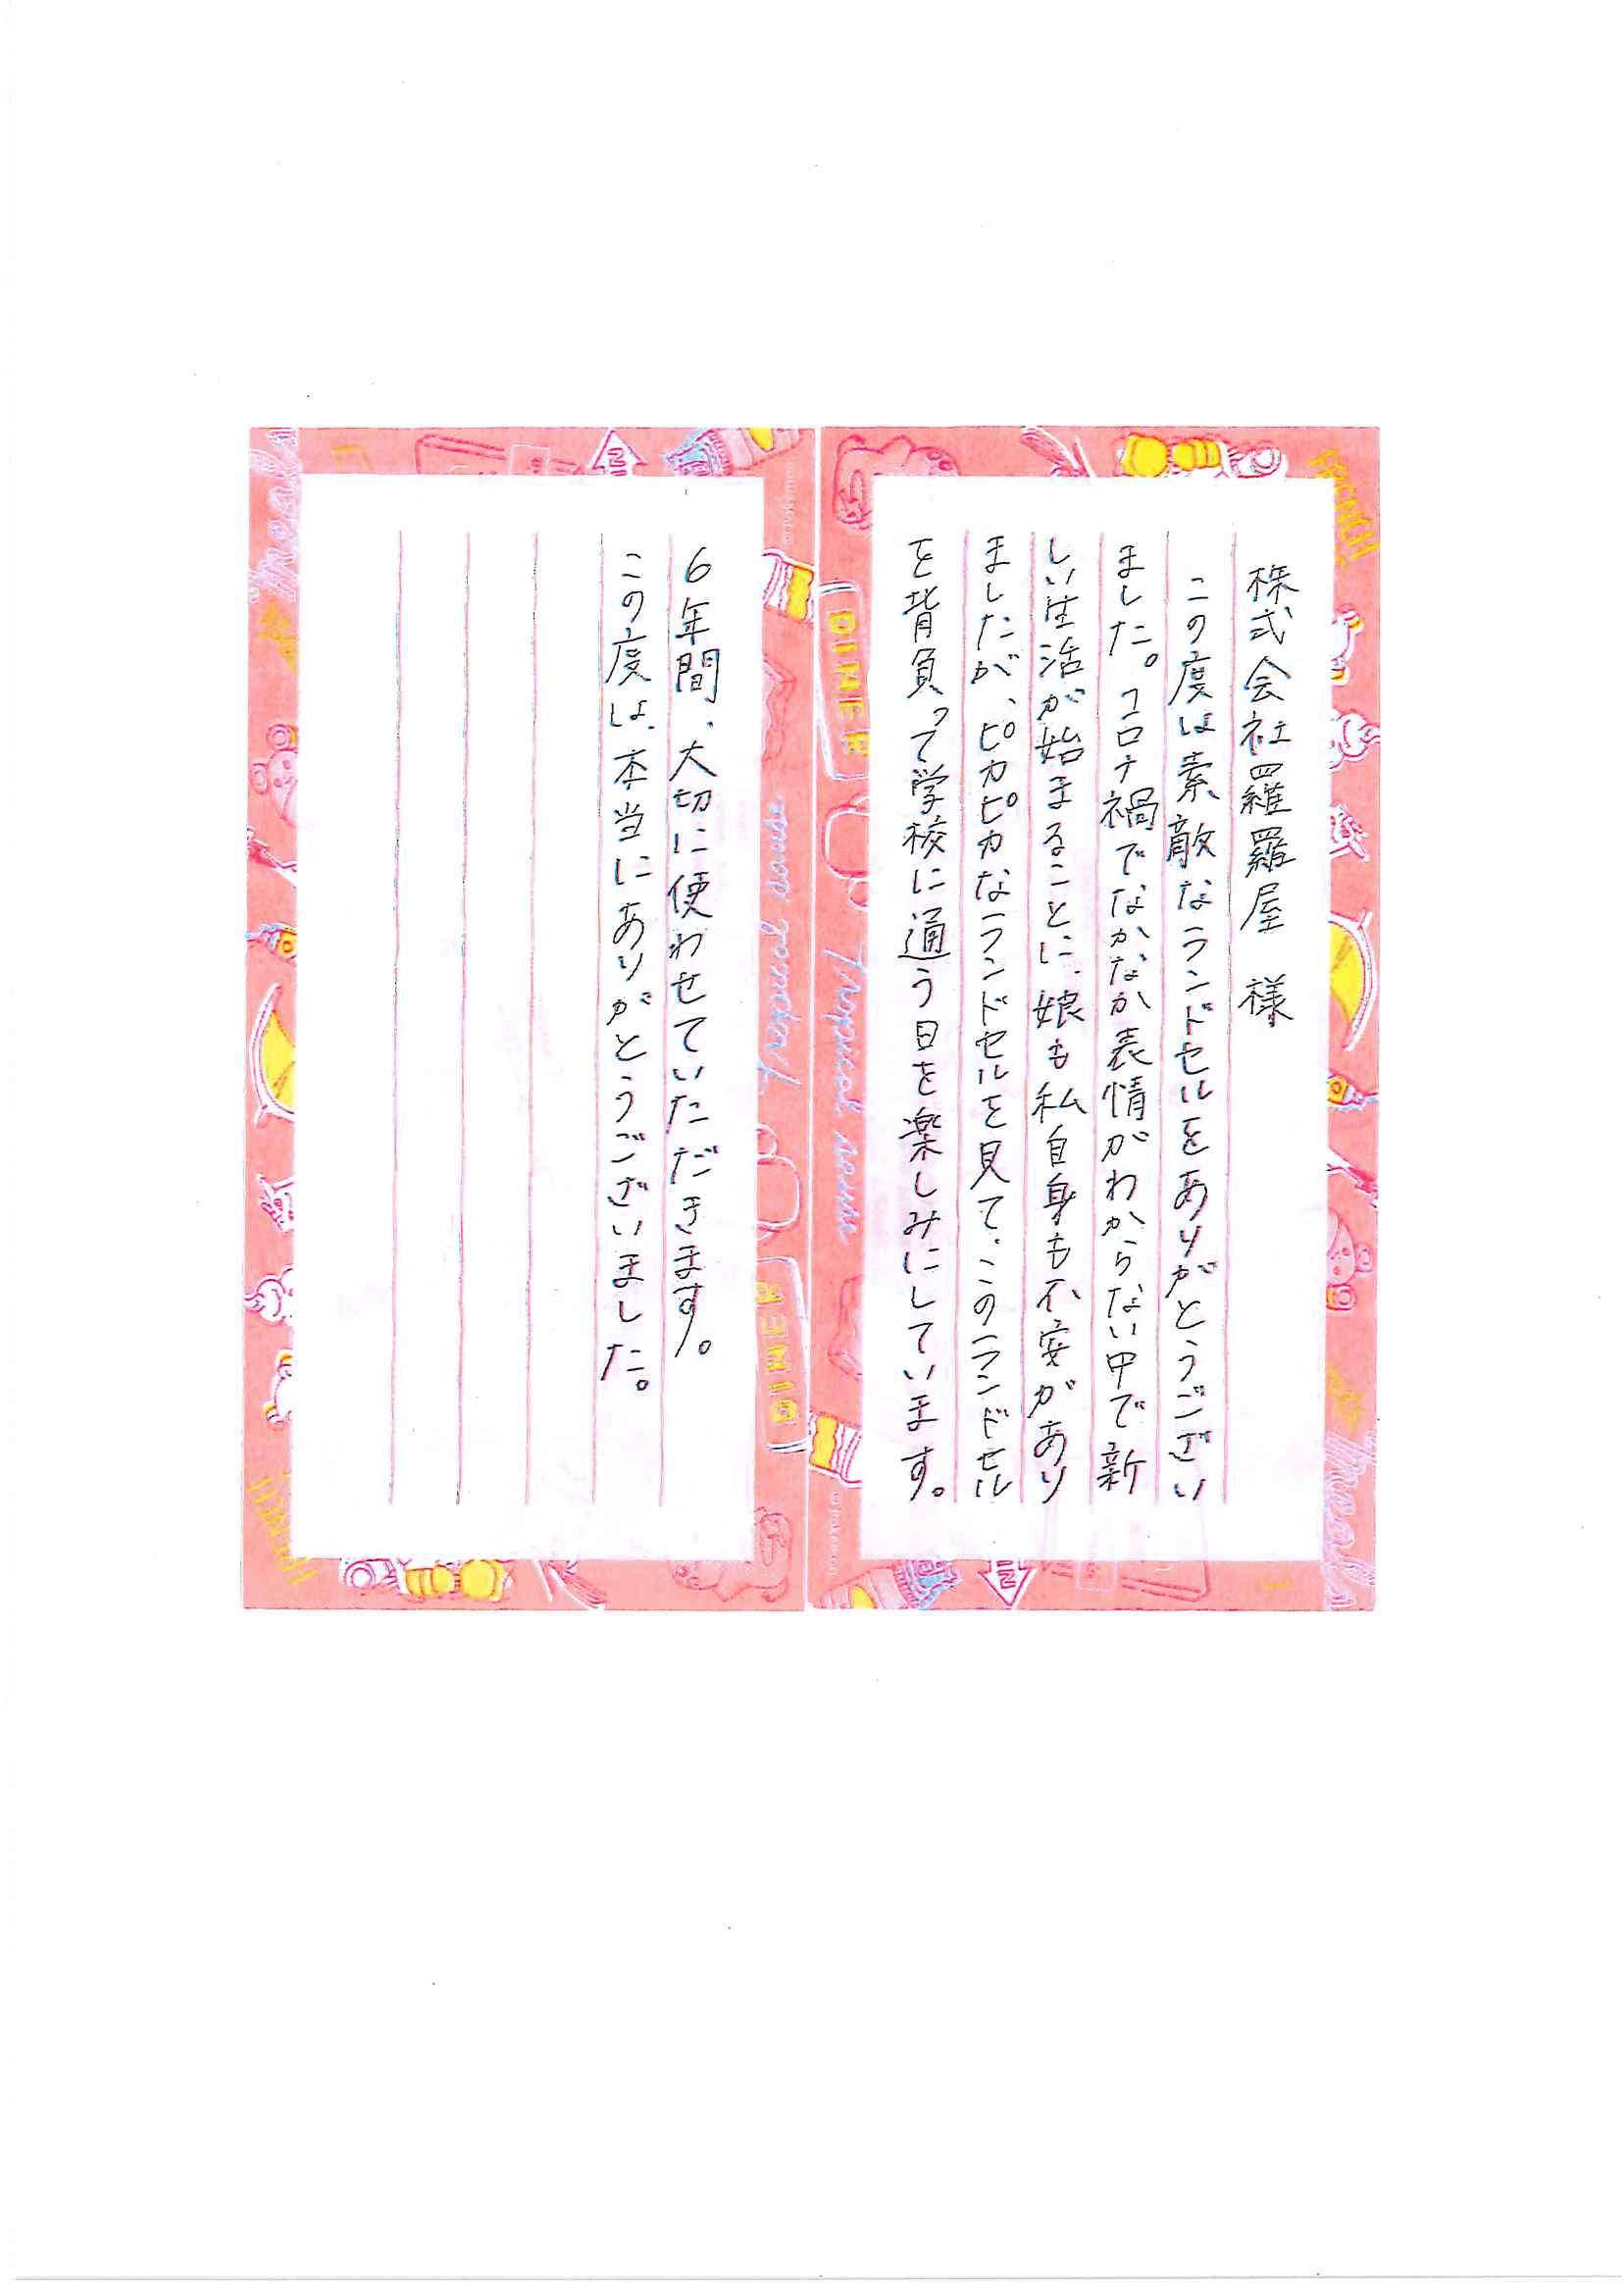 株式会社羅羅屋 様
この度は素敵なランドセルをありがとうござい
ました。コロナ禍でなかなか表情がわからない中で新
しい生活が始まることに、娘も私自身も不安があり
ましたが、ピカピカなランドセルを見て、このランドセル
を背負って学校に通う日を楽しみにしています。
6年間、大切に使わせていただきます。
この度は、本当にありがとうございました。
DINER
Tropical
DINER